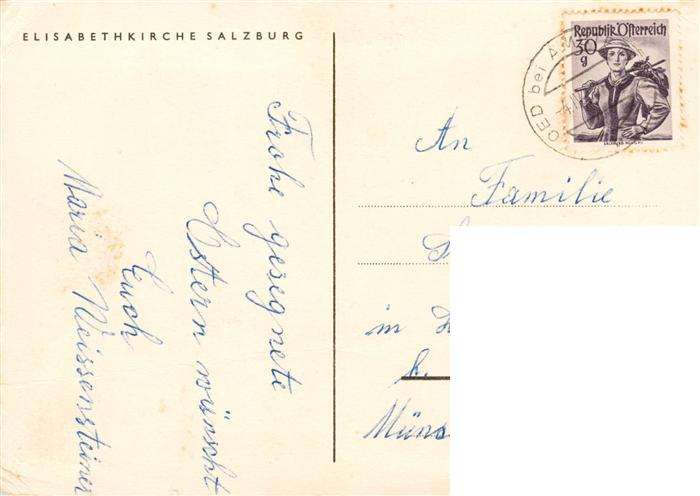 ELISABETHKIRCHE SALZBURG
Frohe gesegnete
Ostern wünscht
Euch
Maria Weissensteiner
Republik Österreich
30
g
OED bei AM
An
Familie
in
b.